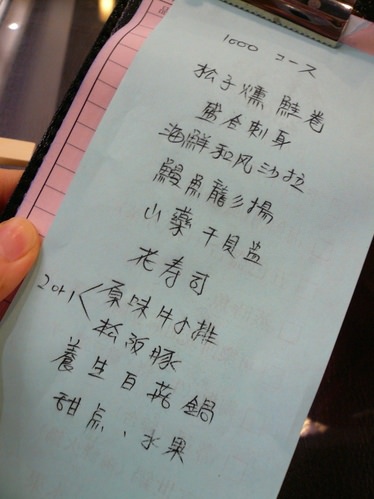 1000 コース
松子燻鮭卷
盛合刺身
海鮮和风沙拉
鰻魚龍彡揚
山藥干貝盅
花寿司
2 or 1 < 原味牛小排
松阪豚
養生百菇鍋
甜点、水果